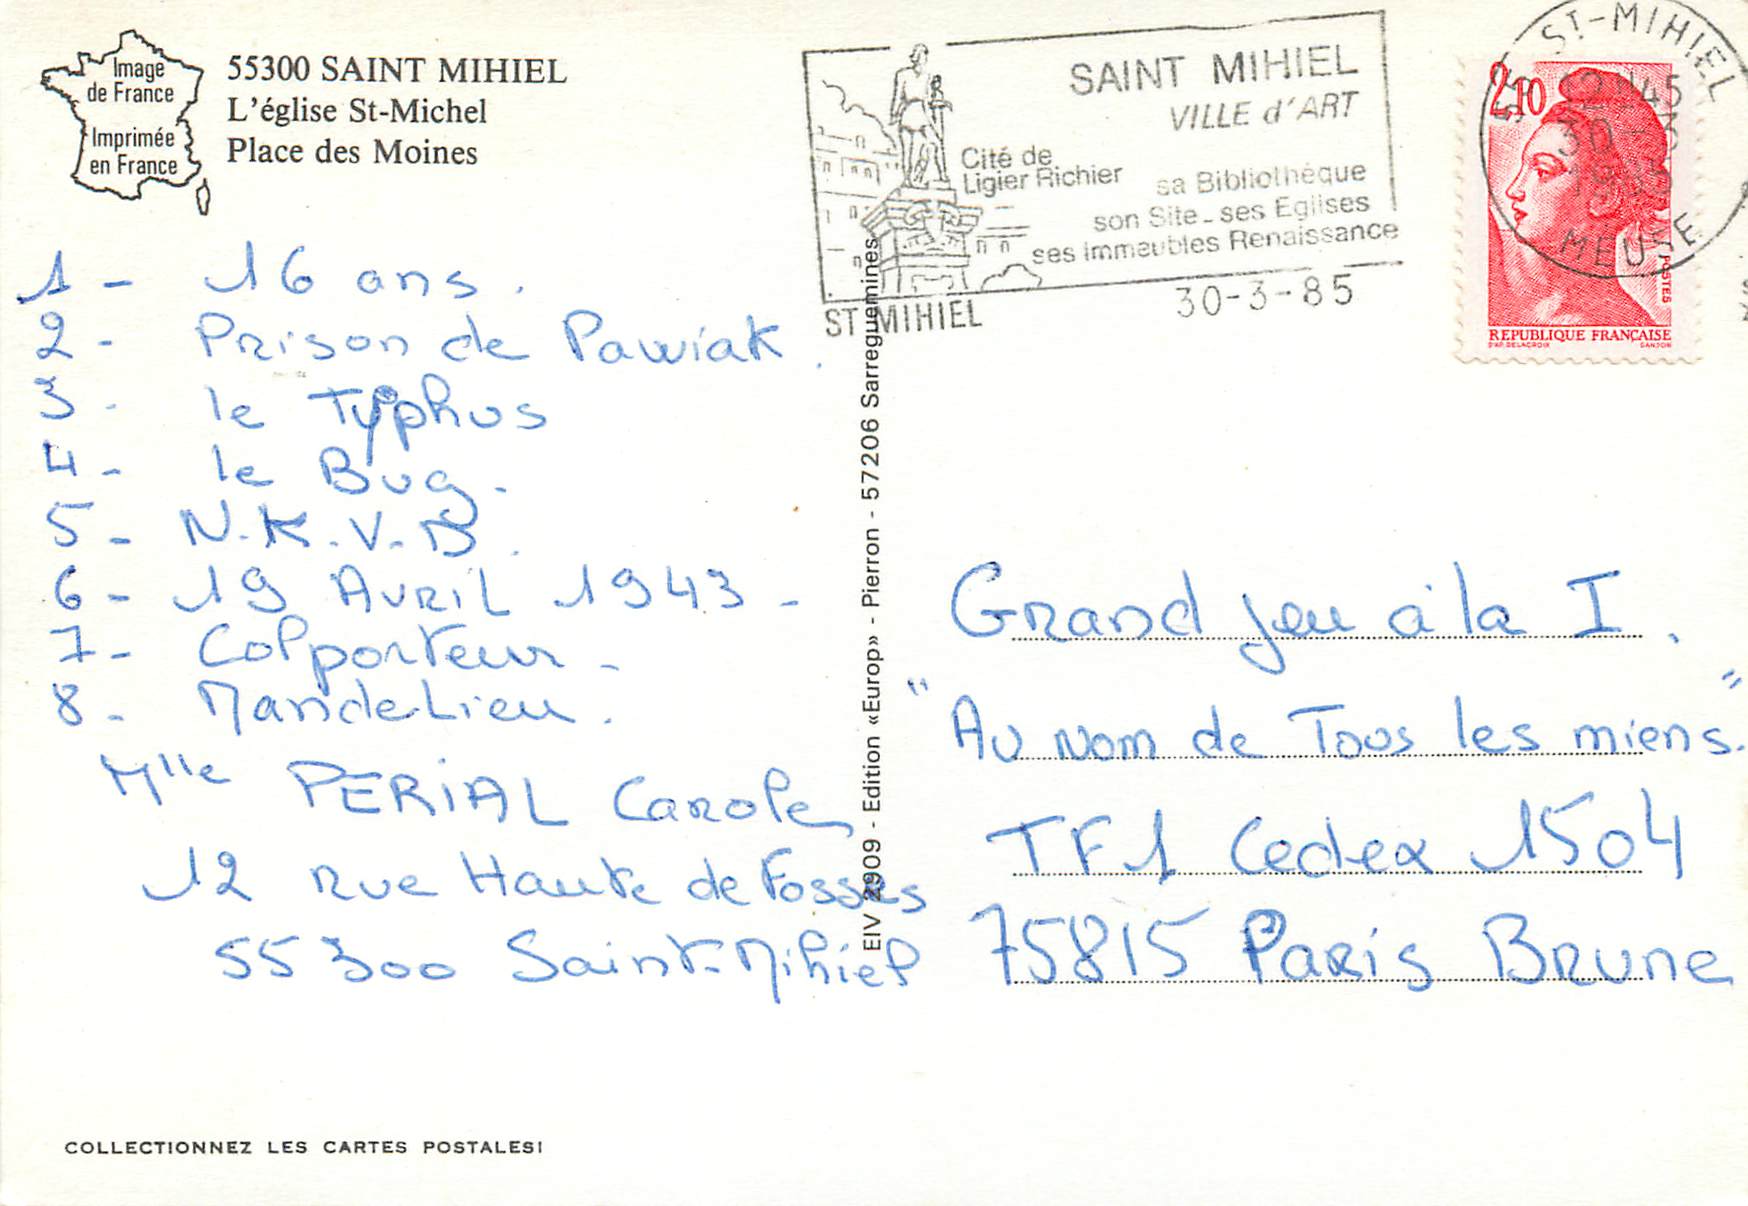 Image
de France
Imprimée
en France
55300 SAINT MIHIEL
L'église St-Michel
Place des Moines
1 - 16 ans.
2 - Prison de Pawiak.
3 - le Typhus
4 - le Bug.
5 - N.K.V.D.
6 - 19 Avril 1943 -
7 - Colporteur -
8 - Mandelieu.
Mlle PERIAL Carole
12 rue Haute de Fosses
55300 Saint-Mihiel
COLLECTIONNEZ LES CARTES POSTALES!
EIV 2909 - Edition «Europ» - Pierron - 57206 Sarreguemines
SAINT MIHIEL
VILLE d'ART
Cité de
Ligier Richier
sa Bibliothèque
son Site - ses Eglises
ses immeubles Renaissance
ST MIHIEL
30-3-85
ST-MIHIEL
12H45
30-3
MEUSE
2,10
POSTES
REPUBLIQUE FRANÇAISE
D'AP. DELACROIX
GANDON
Grand Jeu à la I.
"Au nom de Tous les miens."
TF1 Cedex 1504
75815 Paris Brune